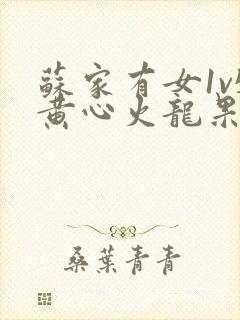 蘇家有女1v1
黄心火龍果
桑葉青青